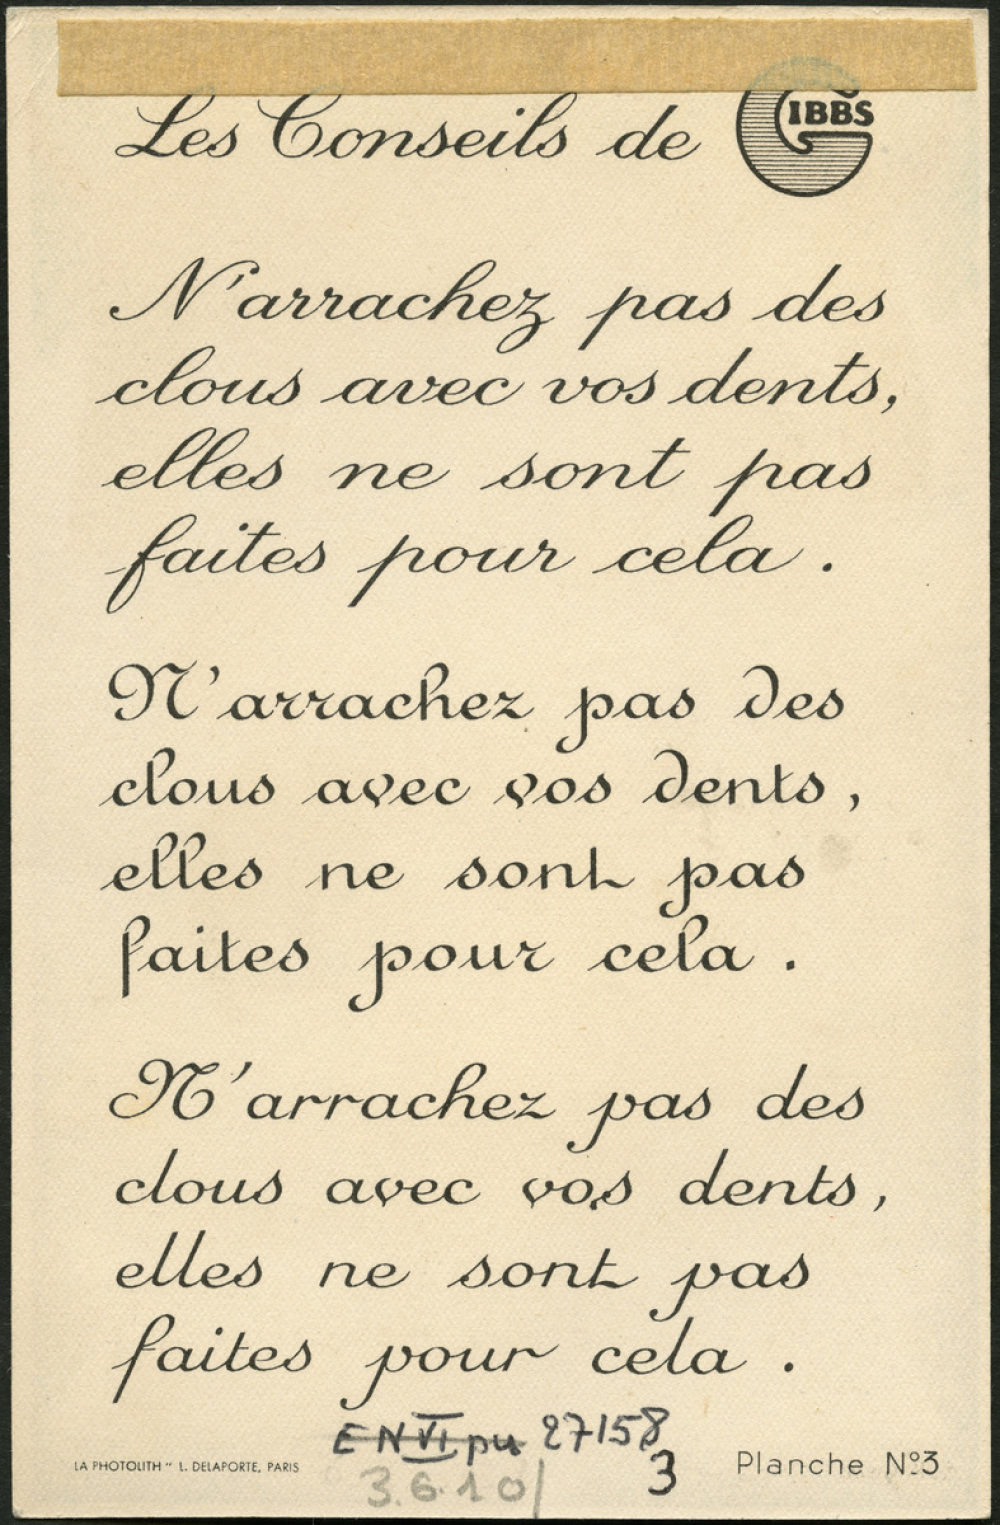 Les Conseils de GIBBS
N'arrachez pas des
clous avec vos dents,
elles ne sont pas
faites pour cela .
N'arrachez pas des
clous avec vos dents,
elles ne sont pas
faites pour cela .
N'arrachez pas des
clous avec vos dents,
elles ne sont pas
faites pour cela .
EN VI pu 27158
3
LA PHOTOLITH " L. DELAPORTE, PARIS
3.6.10/
Planche Nº3